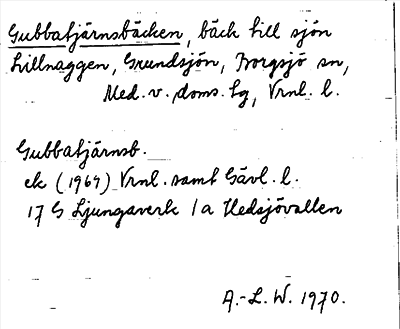 Gubbatjärnsbäcken, bäck till sjön
Lillnaggen, Grundsjön, Borgsjö sn,
Med. v. doms. tg, Vrnl. l.
Gubbatjärnsb.
ek (1969) Vrnl. samt Gävl. l.
17 G Ljungaverk / a Hedsjövallen
A.-L. W. 1970.